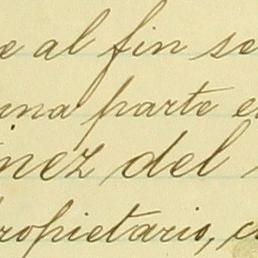 e al fin se
una parte e
inez del
propietario, c